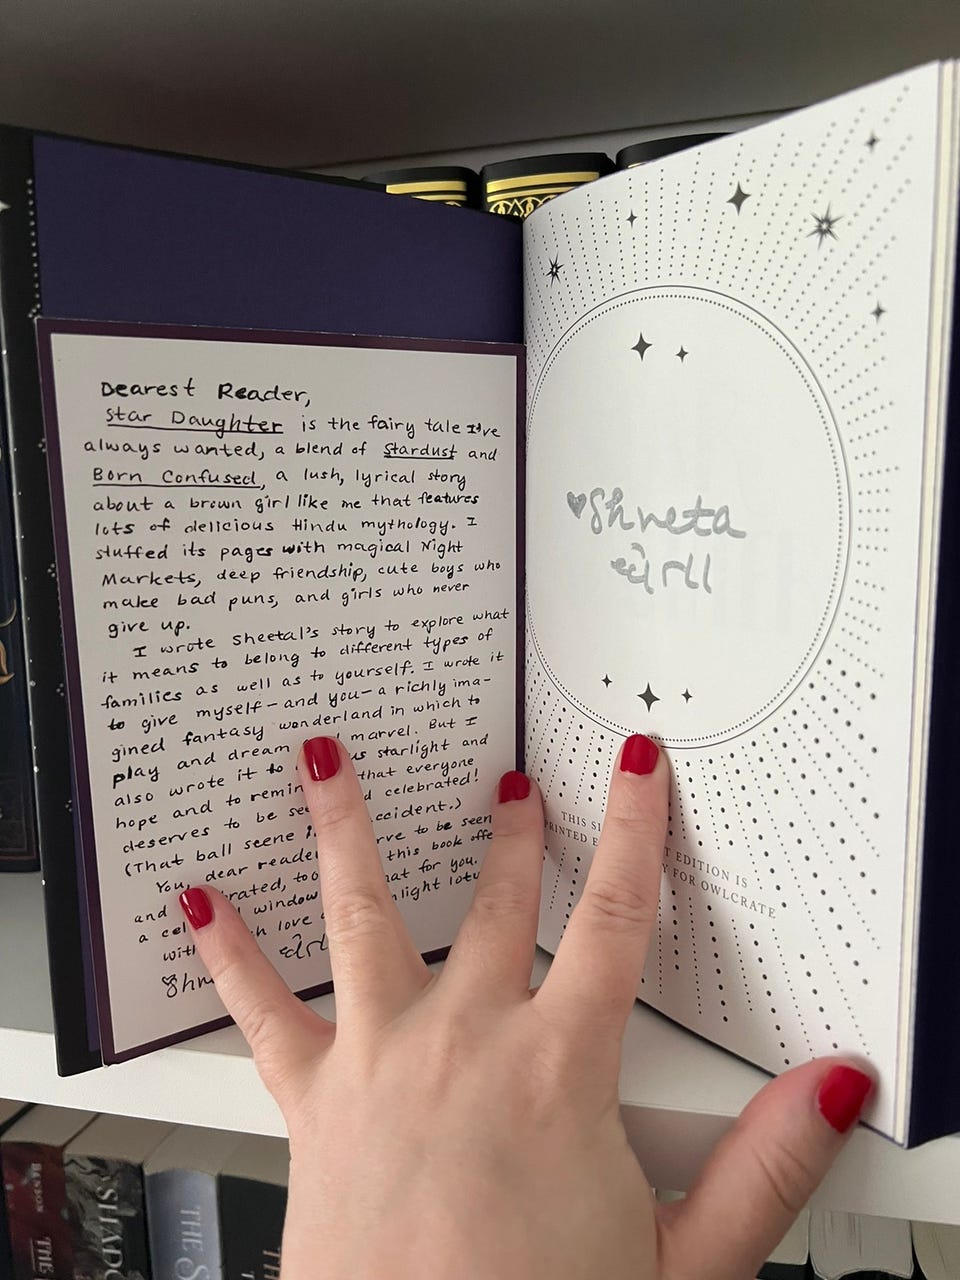 Dearest Reader,
Star Daughter is the fairy tale I've
always wanted, a blend of Stardust and
Born Confused, a lush, lyrical story
about a brown girl like me that features
lots of delicious Hindu mythology. I
stuffed its pages with magical Night
Markets, deep friendship, cute boys who
make bad puns, and girls who never
give up.
I wrote Sheetal's story to explore what
it means to belong to different types of
families as well as to yourself. I wrote it
to give myself—and you—a richly ima-
gined fantasy wonderland in which to
play and dream marvel. But I
also wrote it to starlight and
hope and to that everyone
deserves to be celebrated!
(That ball scene
You, dear to be seen
and too this book
a window for you.
love
Shveta
THIS
PRINTED EDITION IS
FOR OWLCRATE
THE
THE